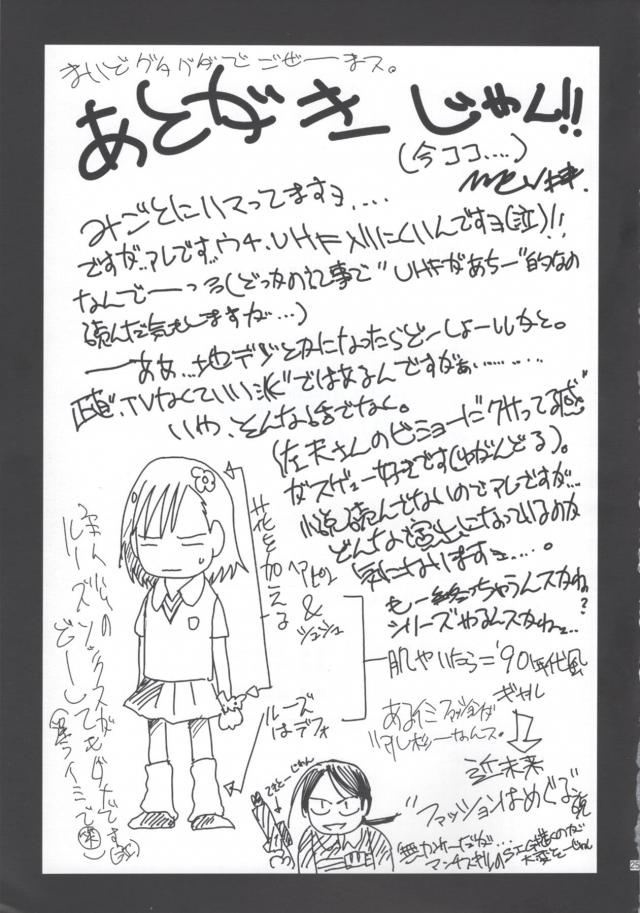 まいどグダグダでごぜーまス。
あとがきーじゃん!!
(今ココ....)
みごとにハマってますョ....
ですが、アレです。ウチ、UHF入りにくいんですョ(泣)!!
なんでーっろ(どっかの記事で"UHFがあちー"的なの
読んだ気もしますが...)
ーああ...地デジとかになったらどーしょーかなと。
正直、"TVなくていい派"ではあるんですがぁ.........
いや、そんな話でなく。
(佐天さんのビミョーにクサってる感
がスゲェー好きです(ゆがんどる)。
小説読んでないのでアレですが...
どんな演出になっているのか
気になりますョ....。
もー終っちゃうんスかね?
シリーズやるんスかねェ..
花を加える
ヘアピン
&
シュシュ
ルーズ
はデフォ
肌やいたら='90年代風
ギャル
あるイミファッションが
近未来
"ファッションはめぐる"説
個人的の
ルーズソックスが
どーしても
ダメです
てきとーじゃん
無かれーだが...
大変そーじゃん
25